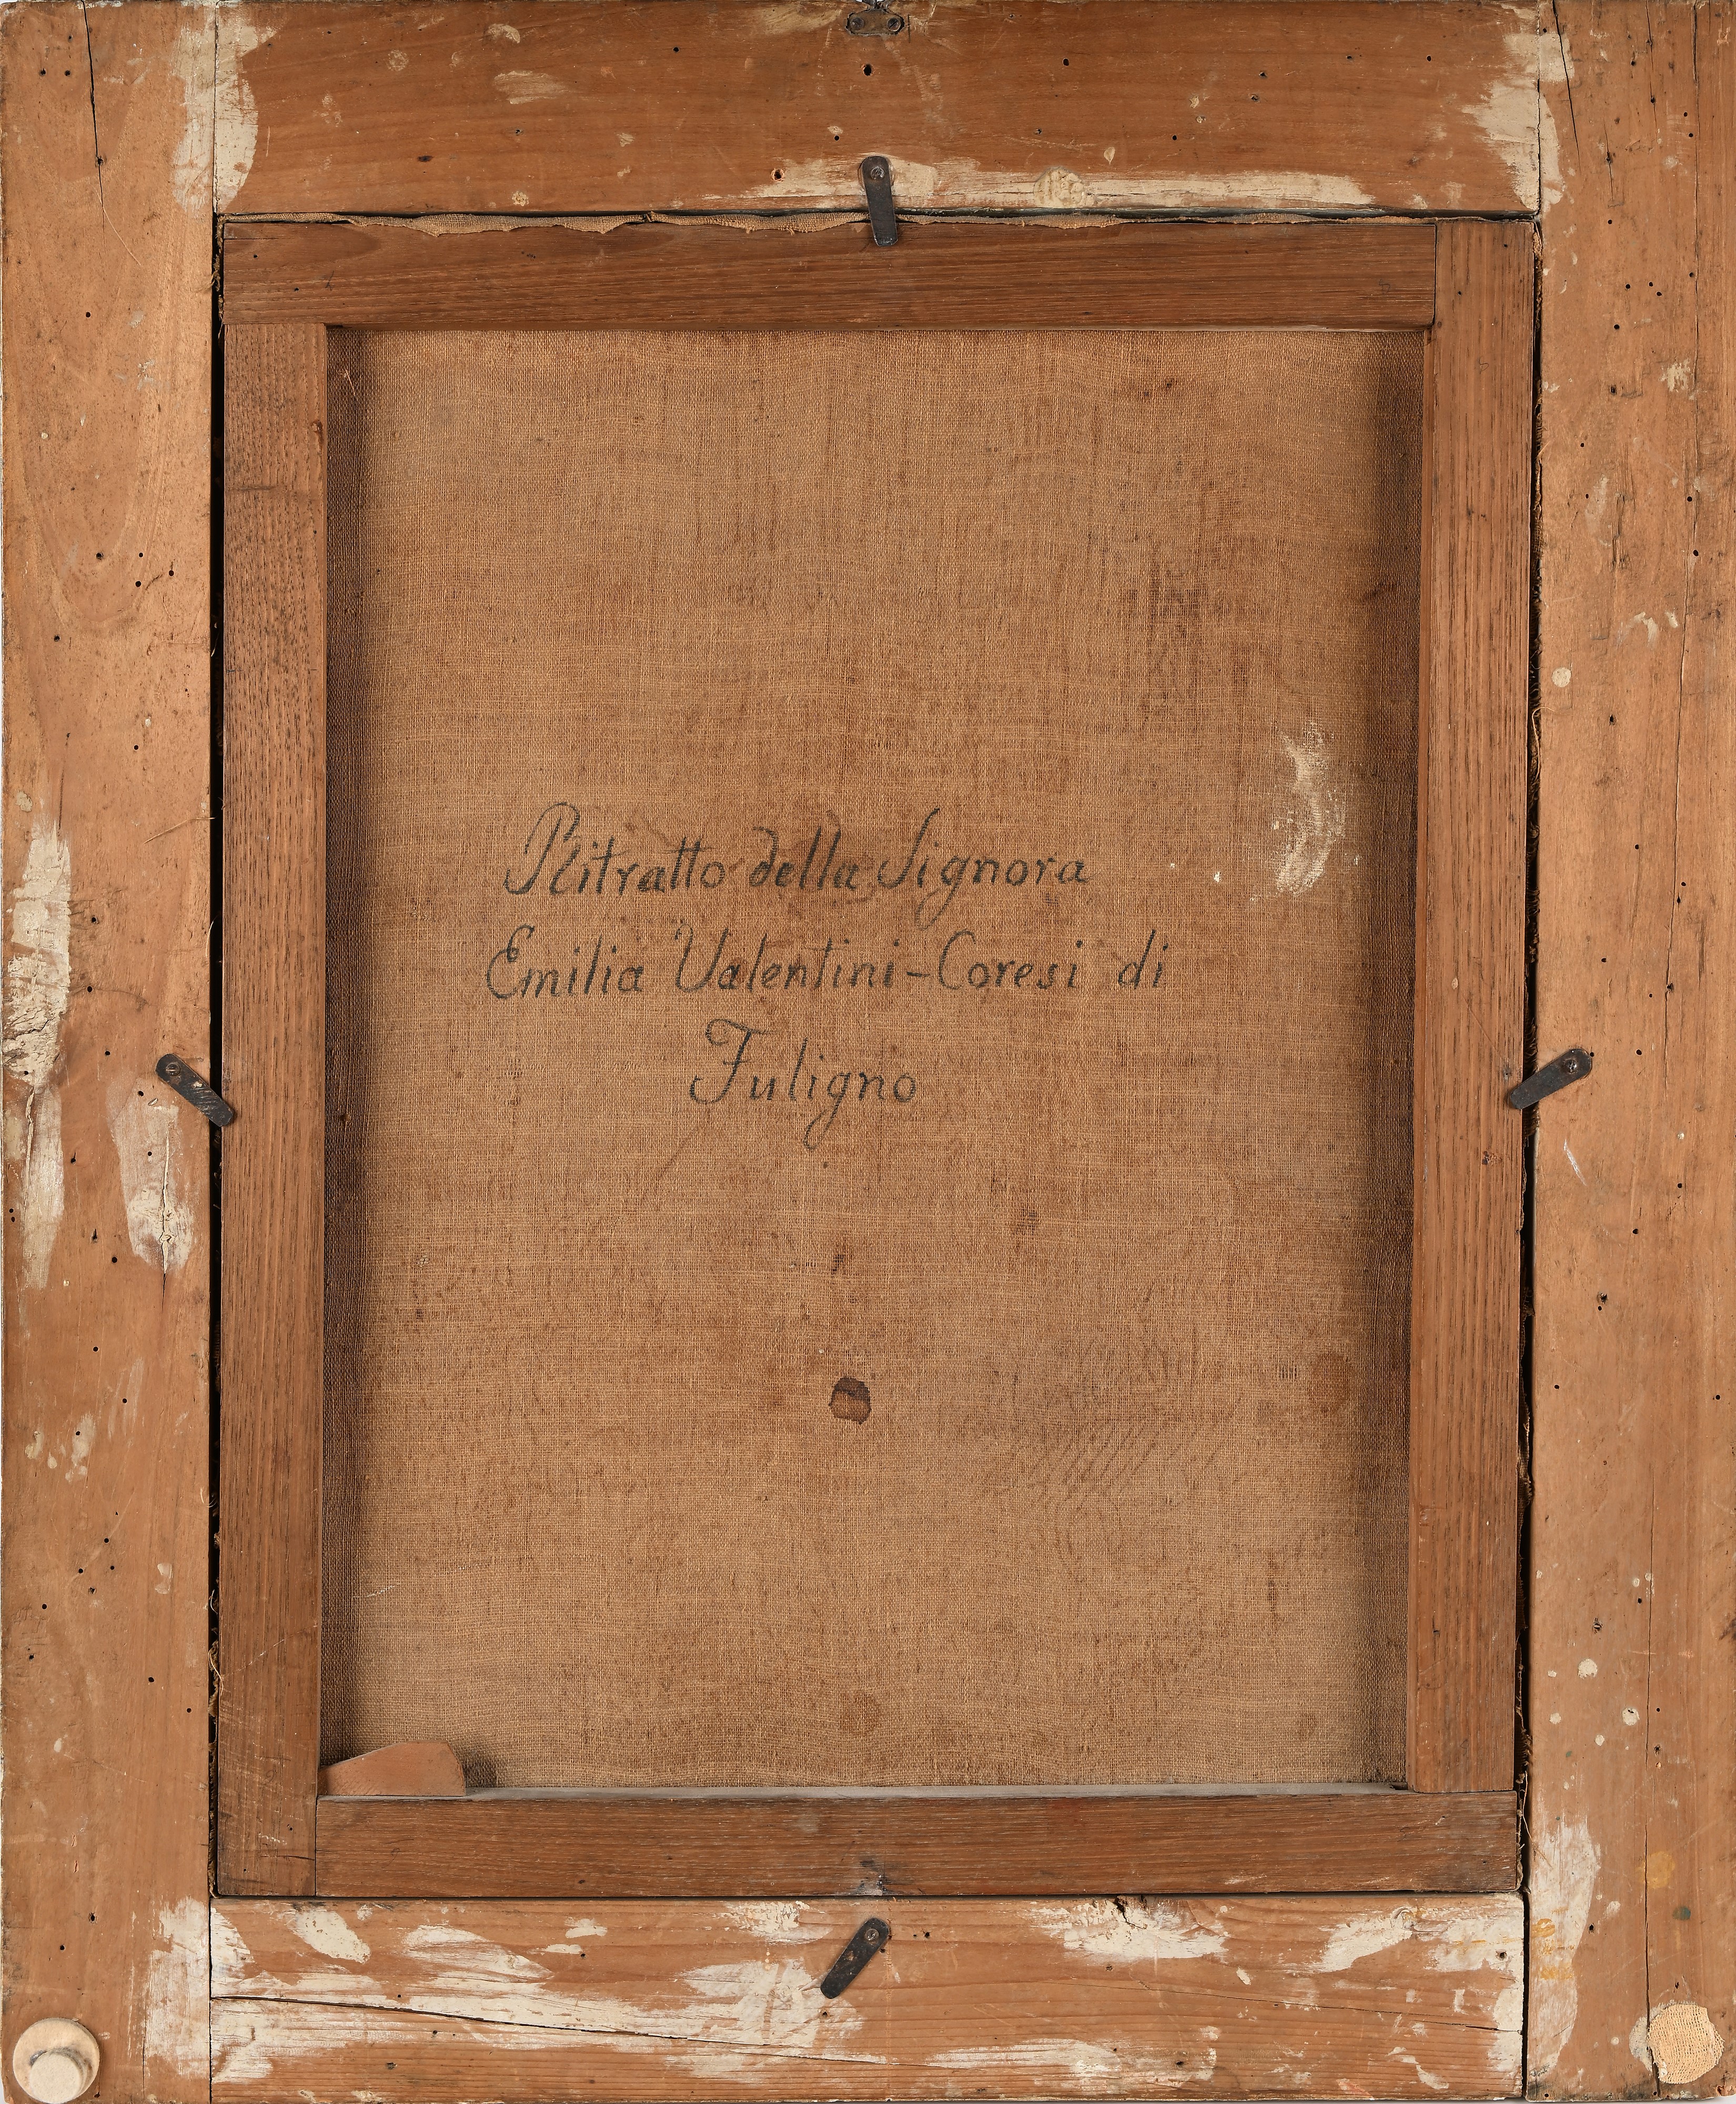 Ritratto della Signora
Emilia Valentini-Coresi di
Fuligno